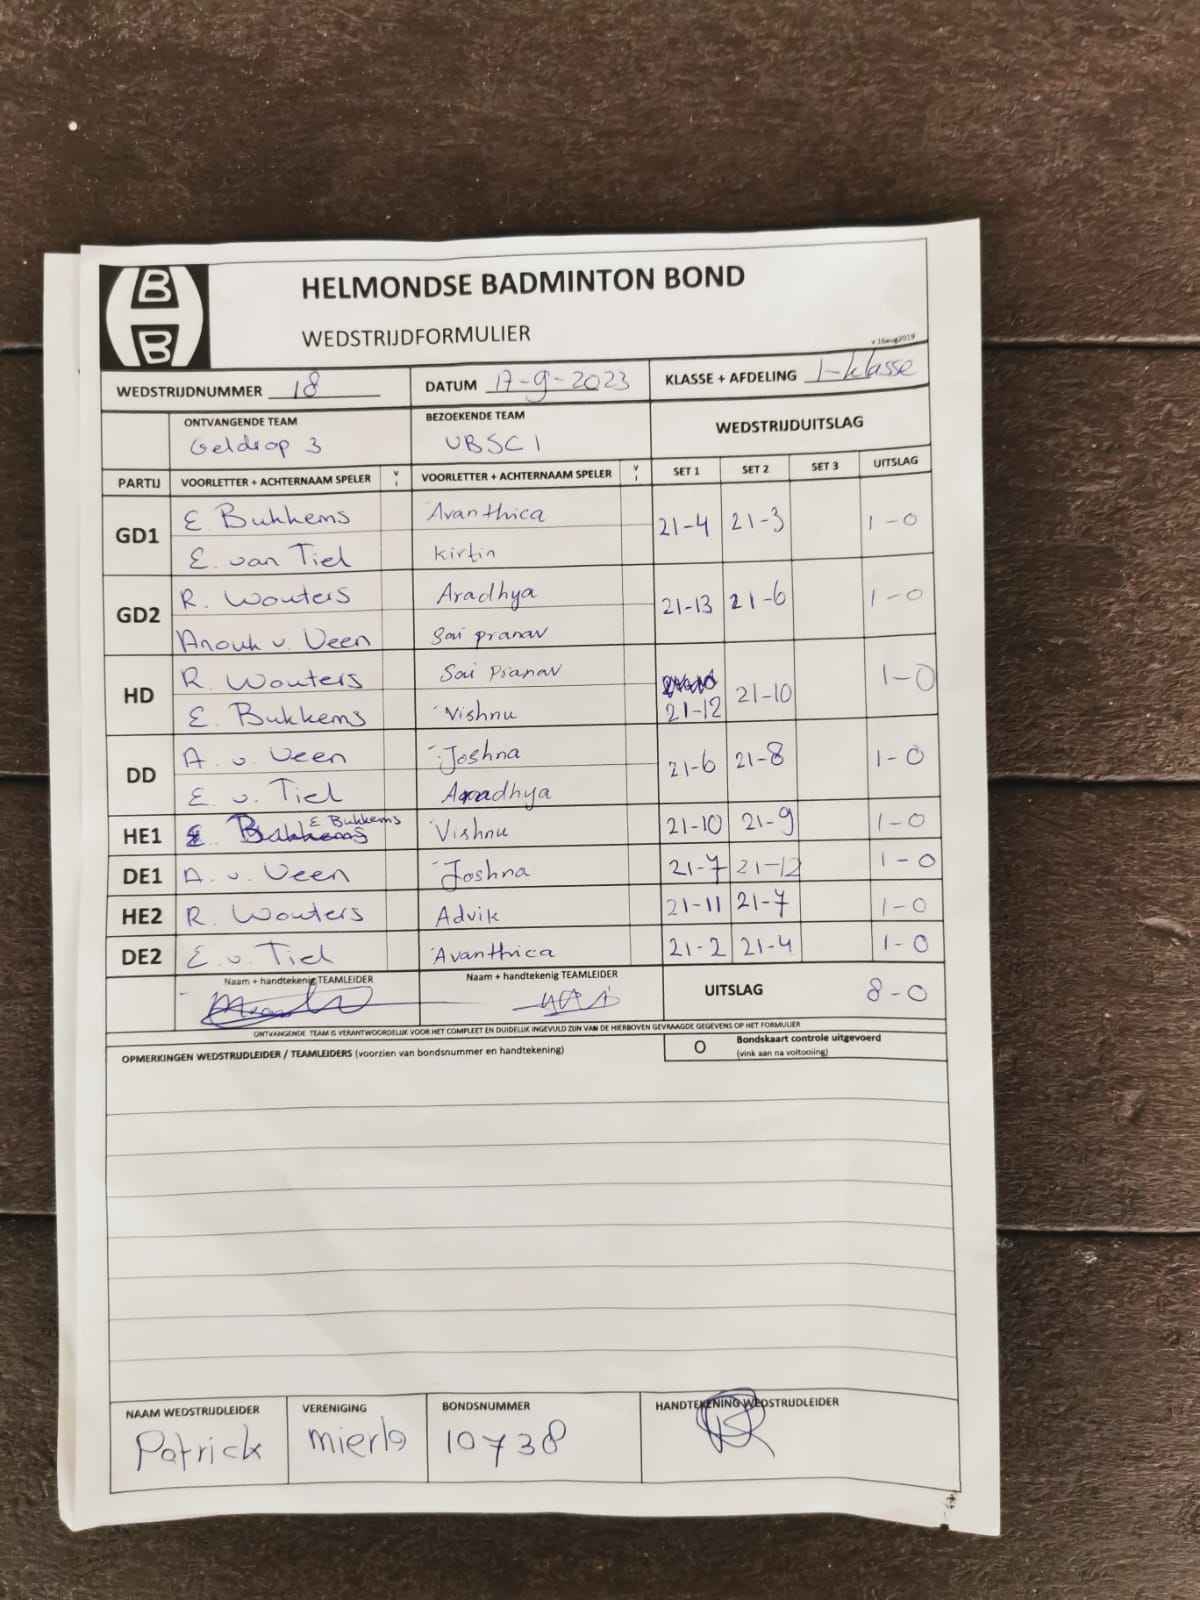 HELMONDSE BADMINTON BOND
WEDSTRIJDFORMULIER
v 16aug2019
WEDSTRIJDNUMMER 18 DATUM 17-9-2023 KLASSE + AFDELING 1-klasse
ONTVANGENDE TEAM BEZOEKENDE TEAM WEDSTRIJDUITSLAG
Geldrop 3 VBSC 1
PARTIJ VOORLETTER + ACHTERNAAM SPELER V I VOORLETTER + ACHTERNAAM SPELER V I SET 1 SET 2 SET 3 UITSLAG
GD1 E Bukkems Avanthica 21-4 21-3 1-0
E. van Tiel Kirtin
GD2 R. Wouters Aradhya 21-13 21-6 1-0
Anouk v. Veen Sai pranav
HD R. Wouters Sai Pranav 21-12 21-10 1-0
E. Bukkems Vishnu
DD A. v. Veen Joshna 21-6 21-8 1-0
E. v. Tiel Aradhya
HE1 E Bukkems Vishnu 21-10 21-9 1-0
DE1 A. v. Veen Joshna 21-7 21-12 1-0
HE2 R. Wouters Advik 21-11 21-7 1-0
DE2 E. v. Tiel Avanthica 21-2 21-4 1-0
Naam + handtekenig TEAMLEIDER Naam + handtekenig TEAMLEIDER UITSLAG 8-0
ONTVANGENDE TEAM IS VERANTWOORDELIJK VOOR HET COMPLEET EN DUIDELIJK INGEVULD ZIJN VAN DE HIERBOVEN GEVRAAGDE GEGEVENS OP HET FORMULIER
OPMERKINGEN WEDSTRIJDLEIDER / TEAMLEIDERS (voorzien van bondsnummer en handtekening) O Bondskaart controle uitgevoerd
(vink aan na voltooiing)
NAAM WEDSTRIJDLEIDER VERENIGING BONDSNUMMER HANDTEKENING WEDSTRIJDLEIDER
Patrick mierlo 10738